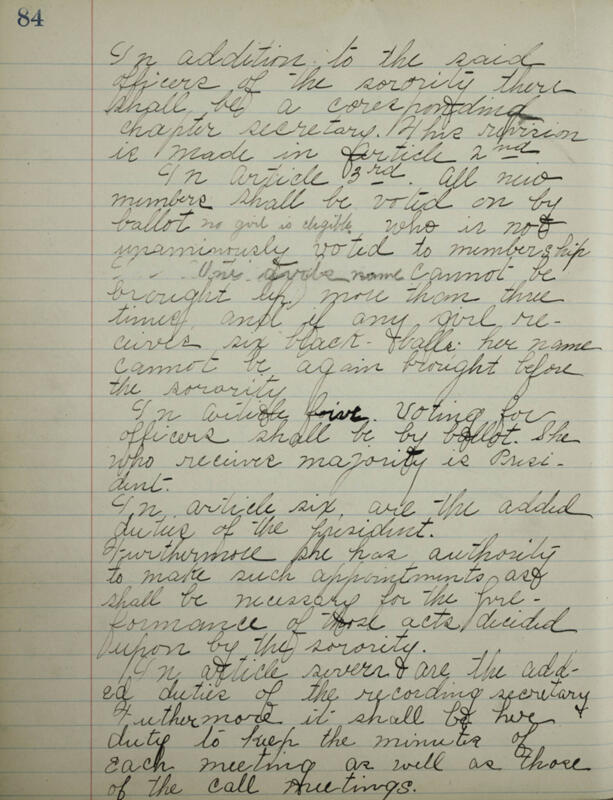 84
In addition to the said
officers of the sorority there
shall be a coresponding
chapter secretary. This revision
is made in Article 2nd
In Article 3rd. All new
members shall be voted on by
ballot no girl is eligible who is not
unaminously voted to membership
One girls name cannot be
brought up more than three
times, and if any girl re-
ceives six black-balls her name
cannot be again brought before
the sorority
In article five. Voting for
officers shall be by ballot. She
who receives majority is Presi-
dent.
In article six, are the added
duties of the president.
Furthermore she has authority
to make such appointments as
shall be necessary for the pre-
formance of those acts decided
upon by the sorority.
In article seven are the add-
ed duties of the recording secretary
Futhermore it shall be her
duty to keep the minutes of
each meeting as well as those
of the call meetings.